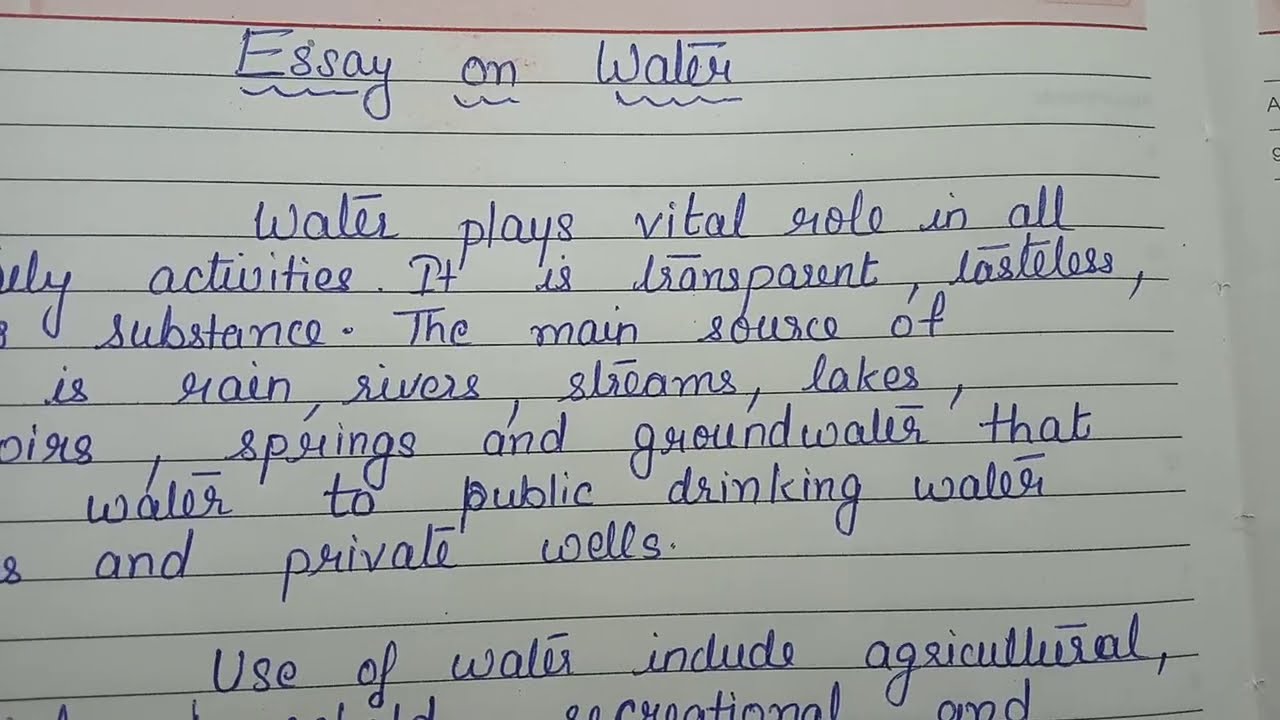 Essay on Water
Water plays vital role in all
activities. It is transparent, tasteless,
substance. The main source of
is rain, rivers, streams, lakes,
, springs and groundwater that
water to public drinking water
and private wells.
Use of water include agricultural,
recreational and